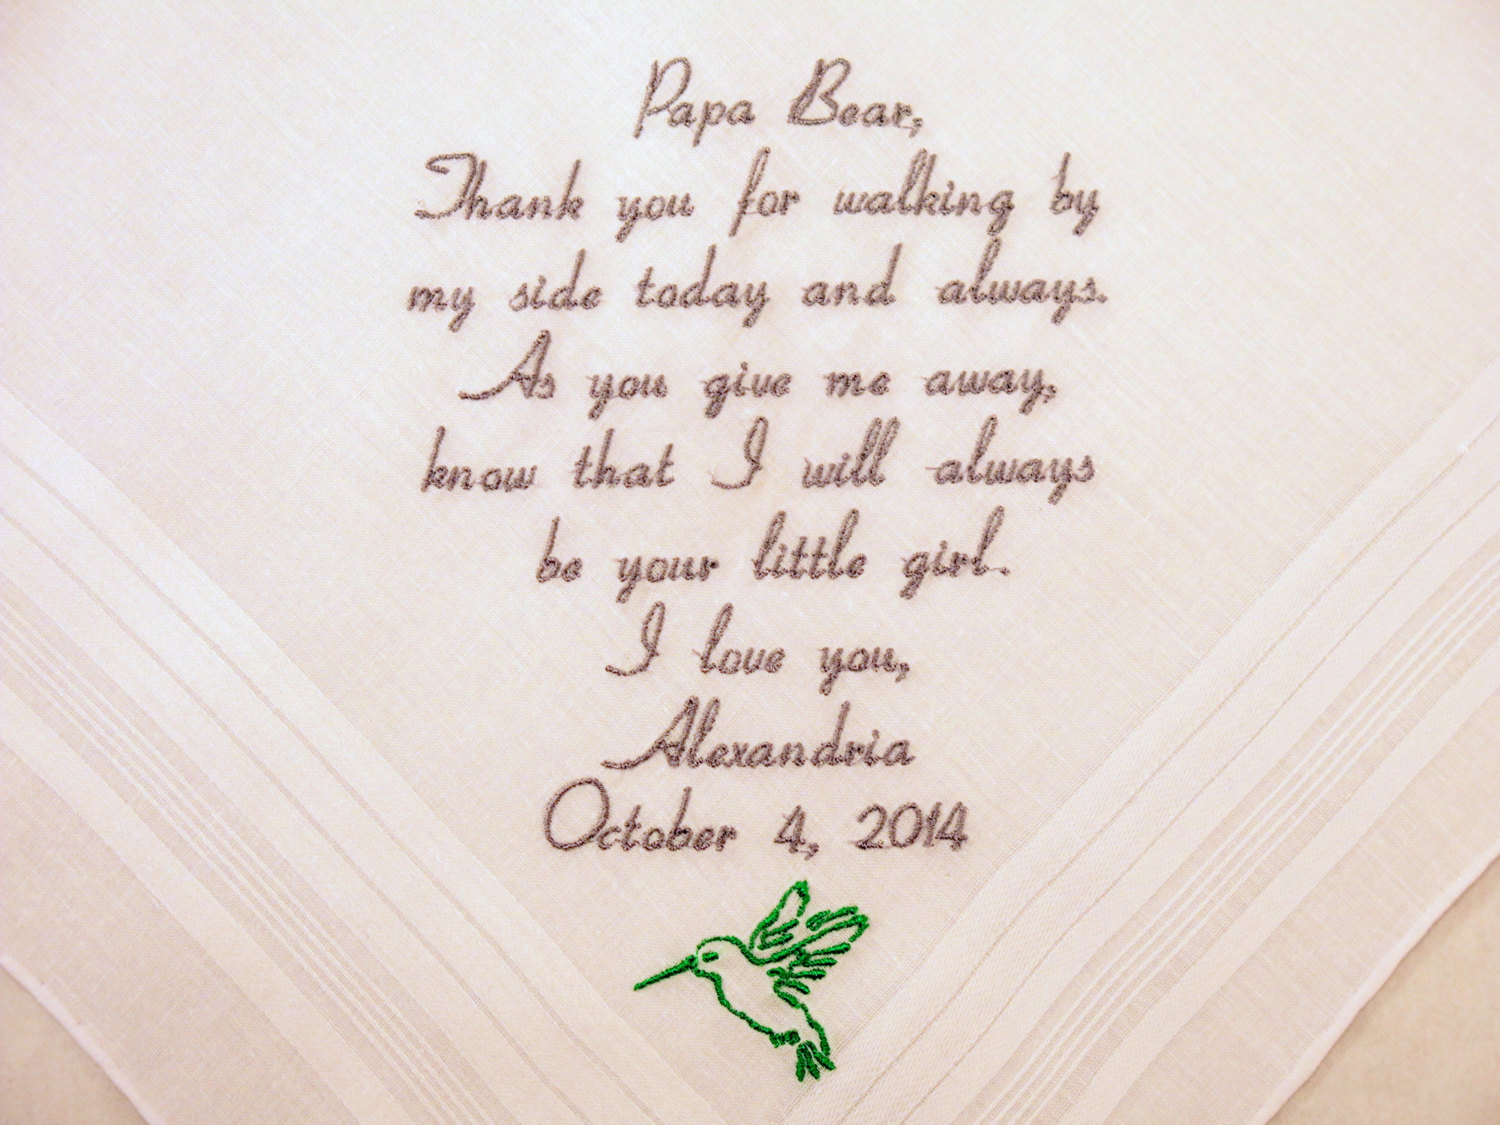 Papa Bear,
Thank you for walking by
my side today and always.
As you give me away,
know that I will always
be your little girl.
I love you,
Alexandria
October 4, 2014